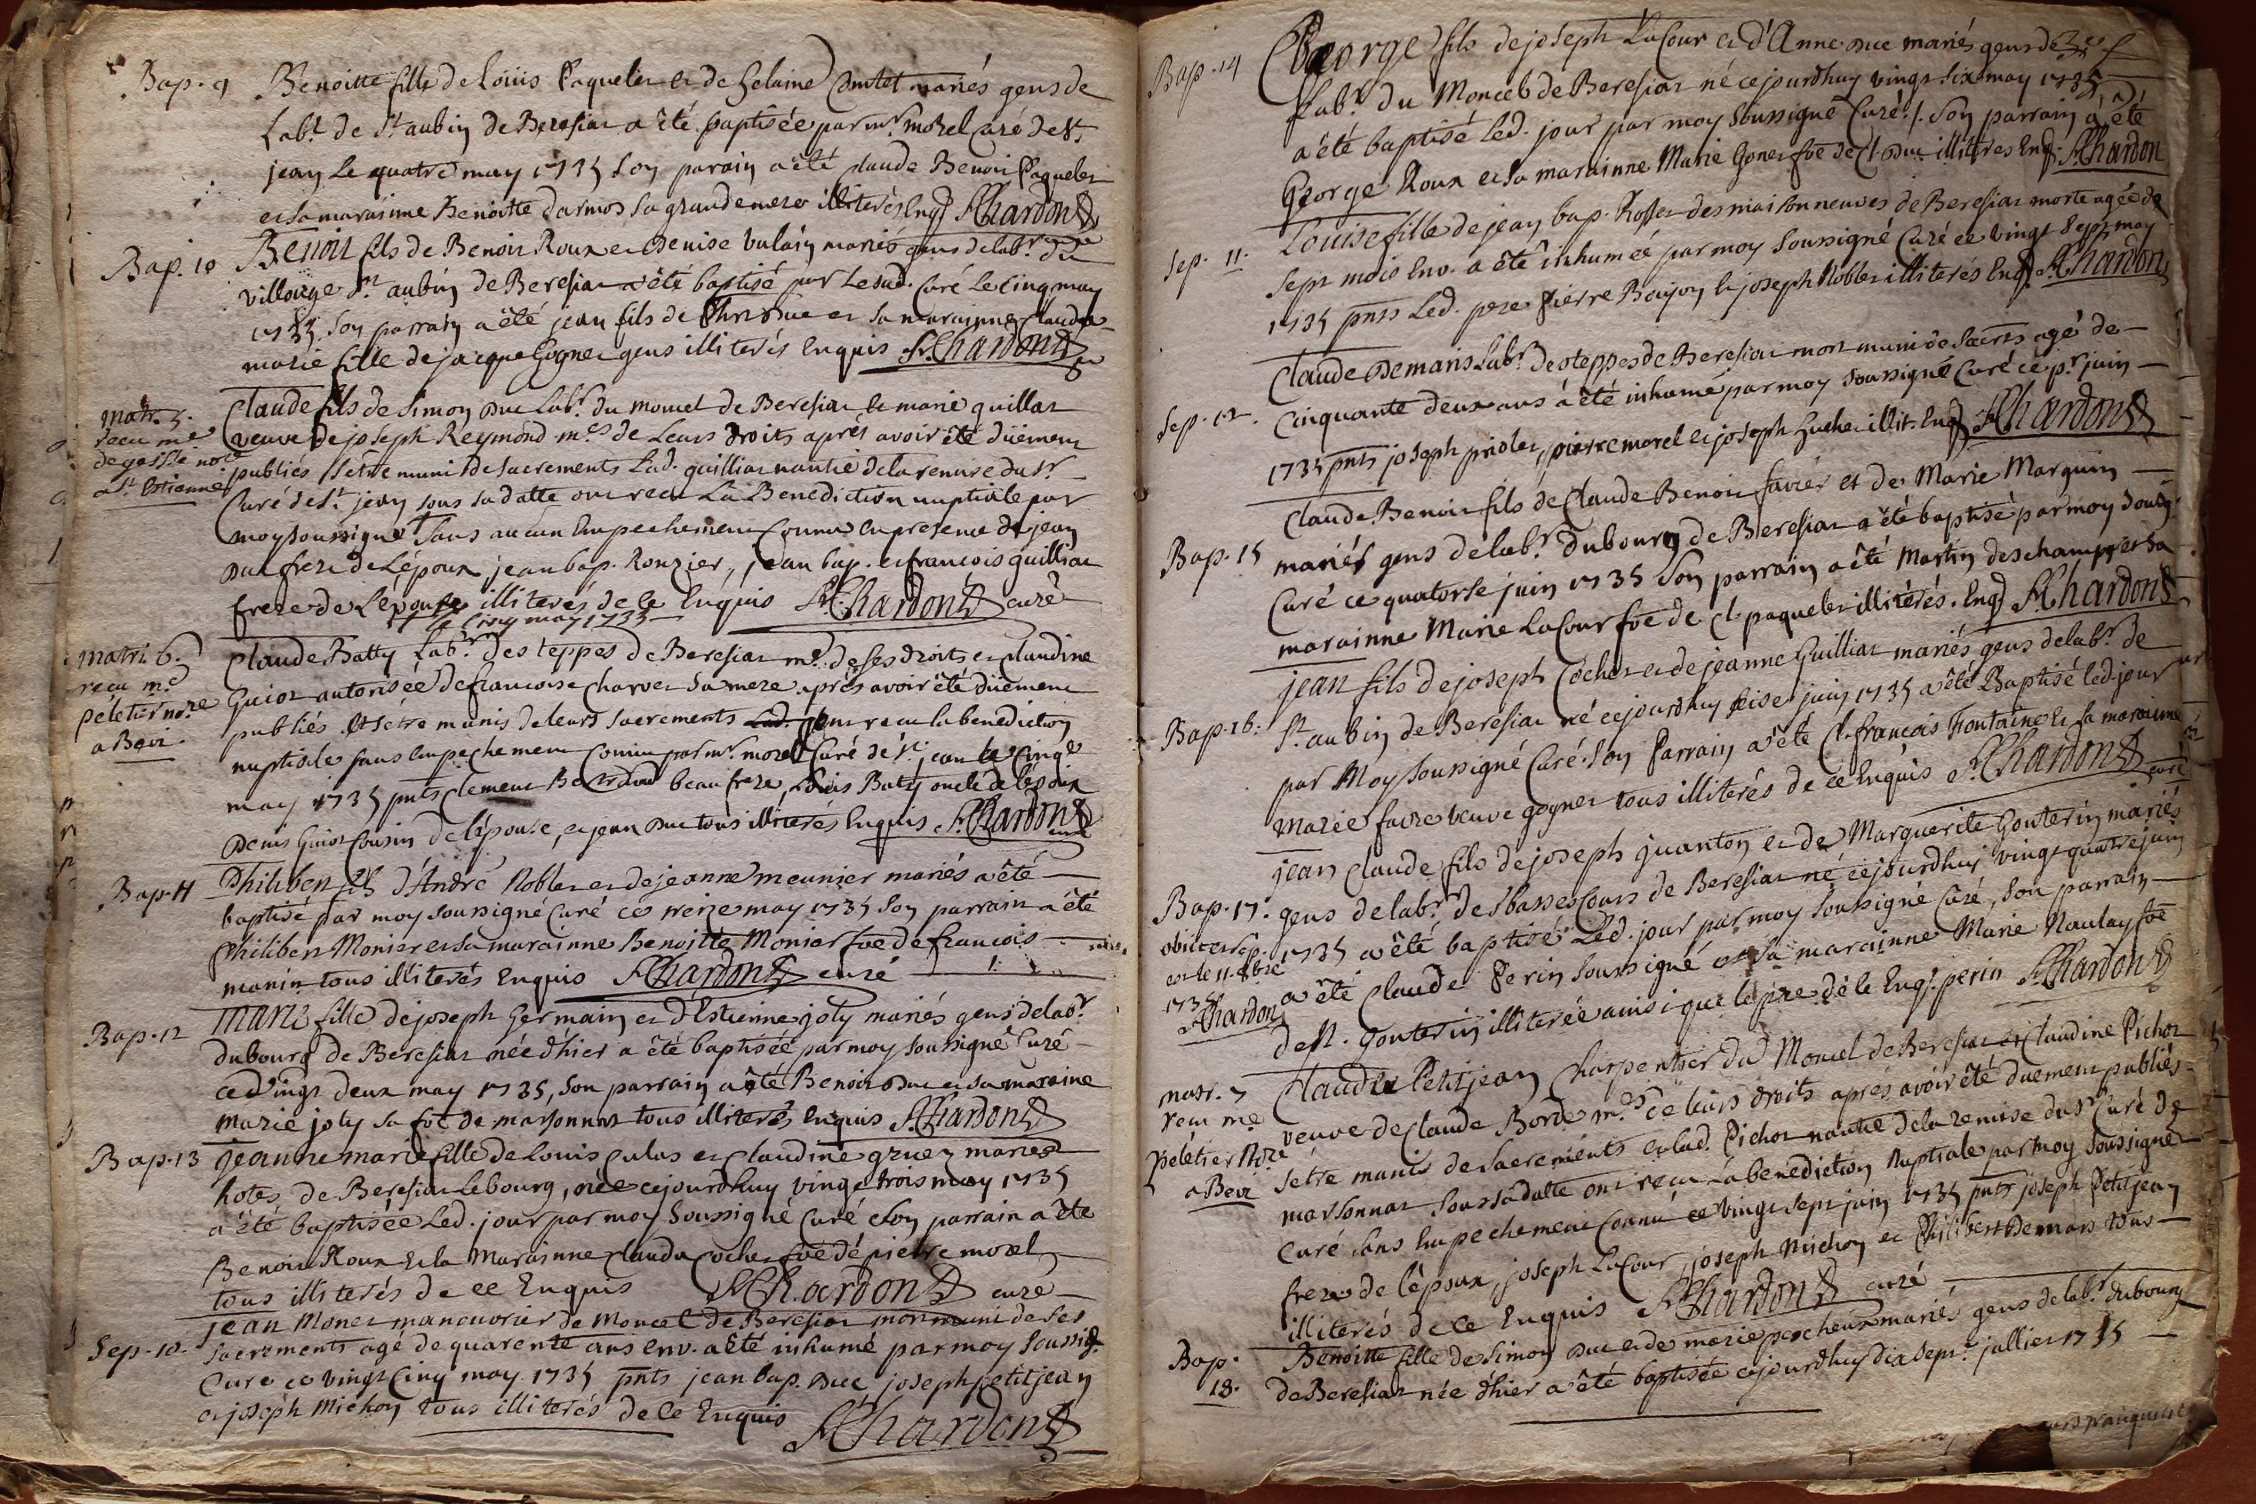 Bap. 9 Benoitte fille de Loüis Paquelet et de Helaine Comtet mariés gens de
Labr. de St aubin de Beresiat a été baptisée par mr. morel Curé de St
jean Le quatre may 1735 son parain a été Claude Benoit Paquelet
et sa marainne Benoitte darmos sa grandemere illiterés Enq. Chardon
Bap. 10 Benoit fils de Benoit Roux et Denise Vulain mariés gens de labr. du
village St aubin de Beresiat a été baptisé par Le sud. Curé le Cinq may
1735 son parrain a été jean fils de Duc et sa marainne Claudine
marie fille de jacque Gogner gens illiterés Enquis Chardon
matr. 5. Claude fils de Simon Duc Labr. du moncel de Beresiat et marie guillat
recu me veuve de joseph Reymond mes de Leurs droits aprés avoir été düement
de gosse nore publiés s'étre muni de sacrements Lad. guilliat nantie de la remise du Sr
a St Estienne Curé de St jean sous sa datte ont recu La Benediction nuptiale par
moy soussigné sans aucun Empechement Connu en presence de jean
Duc frere de L'époux jean bap. Rouzier, jean bap. et francois guilliat
frere de L'épouse illiterés de ce Enquis Chardon curé
le Cinq may 1735
matri. 6. Claude Batty Labr. des teppes de Beresiat me. de ses droits et Claudine
recu me Guiot autorisée de francoise Charvet sa mere aprés avoir été düement
peletier nore publiés et s'étre munis de leurs sacrements ont recu la benediction
a Bevi. nuptiale sans empechement Connu par mr. morel Curé de St jean le Cinq
may 1735 pnts Clement Bertrand beaufrere, Loüis Batty oncle de l'époux
Denis Guiot Cousin de l'épouse, et jean Duc tous illiterés Enquis Chardon
curé
Bap. 11 Philibert fils d'André Noblet et de jeanne meunier mariés a été
baptisé par moy soussigné Curé ce treize may 1735 son parrain a été
Philibert Monier et sa marainne Benoitte Monier foe de francois
manin tous illiterés Enquis Chardon curé
Bap. 12 marie fille de joseph Germain et d'Estienne joly mariés gens de labr
du bourg de Beresiat née d'hier a été baptisée par moy soussigné Curé
ce Vingt deux may 1735, son parrain a été Benoit Duc et sa maraine
marie joly sa foe de marsonnat tous illiterés Enquis Chardon
Bap. 13 jeanne marie fille de Louis Culas et Claudine gruez mariés
hotes de Beresiat Le bourg, née cejourdhuy vingt trois may 1735
a été baptisée Led. jour par moy Soussigné Curé son parrain a été
Benoit Roux et la Marainne Clauda Cochet foe de pierre morel
tous illiterés de ce Enquis Chardon curé
Sep. 10. jean Monet manouvrier de Moncel de Beresiat mort muni de ses
Sacrements agé de quarente ans env. a été inhumé par moy soussig.
Curé ce vingt Cinq may 1735 pnts jean bap. Duc, joseph petitjean
et joseph Michon tous illiterés de ce Enquis Chardon
Bap. 14 George fils de joseph LaCour et d'Anne Duc mariés gens de
Labr. du Moncel de Beresiat né cejourdhuy vingt six may 1735
a été baptisé Led. jour par moy Soussigné Curé. Son parrain a été
George Roux et sa marainne Marie Gonet foe de Cl. Duc illiterés Enq. Chardon
Sep. 11. Louise fille de jean bap. Rosset des maisonneuves de Beresiat morte agée de
Sept mois Env. a été inhumée par moy Soussigné Curé ce vingt sept may
1735 pnts Led. pere Pierre Boujon et joseph Noblet illiterés Enq. Chardon
Sep. 12. Claude Demaris Labr. des teppes de Beresiat mort muni de sacrts agé de
Cinquante deux ans a été inhumé par moy Soussigné Curé ce pr. juin
1735 pnts joseph prioler, pierre morel et joseph Guchet illit. Enq. Chardon
Bap. 15 Claude Benoit fils de Claude Benoit favier et de Marie Marguin
mariés gens de labr. du bourg de Beresiat a été baptisé par moy Soussig.
Curé ce quatorse juin 1735 Son parrain a été Martin deschamps et sa
marainne Marie LaCour foe de Cl. paquelet illiterés. Enq. Chardon
Bap. 16. jean fils de joseph Cochet et de jeanne Guilliat mariés gens de labr. de
St aubin de Beresiat né cejourdhuy seise juin 1735 a été Baptisé led. jour
par Moy Soussigné Curé. Son Parrain a été Cl. francois Fontaine et sa marainne
Marie favre veuve gogner tous illiterés de ce Enquis Chardon curé
Bap. 17. jean Claude fils de joseph juanton et de Marguerite Gonterin mariés
gens de labr. des basses Cours de Beresiat né cejourdhuy vingt quatre juin
1735 a été baptisé Led. jour par moy soussigné Curé, son parrain
a été Claude Perin Soussigné et sa marainne Marie Naulay foe
de Gonterin illiterée ainsi que le pere de ce Enq. perin Chardon
obiit et sep.
est le 11. 8bre
1735
Chardon
matr. 7 Claude Petitjean Charpentier du Moncel de Beresiat et Claudine Pichot
recu me veuve de Claude Borde mes de leurs droits aprés avoir été duement publiés
peletier Nore s'étre munis de sacrements et lad. Pichot nantie de la remise du Sr Curé de
a Bevi marsonnat sous sa datte ont recu La benediction Nuptiale par moy Soussigné
Curé sans Empechement connu ce vingt sept juin 1735 pnts joseph Petitjean
frere de l'époux, joseph LaCour, joseph Michon et Philibert Demars tous
illiterés de ce Enquis Chardon curé
Bap. 18. Benoitte fille de Simon Duc et de marie pescheux mariés gens de labr. du bourg
de Beresiat née d'hier a été baptisée cejourdhuy dix sept juillet 1735